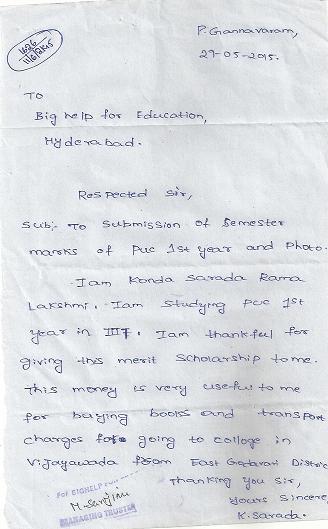 P. Gannavaram,
29-05-2015.
1626
11/6/2015
TO
Big help for Education,
Hyderabad.
Respected Sir,
Sub:- To submission of Semester
marks of PUC 1st year and Photo.
Iam Konda Sarada Rama
Lakshmi. Iam studying PUC 1st
year in IIIT. Iam thankful for
giving this merit scholarship to me.
This money is very useful to me
for buying books and transport
charges for going to college in
Vijayawada from East Godavari Distric
Thanking you Sir,
Yours Sincere
K. Sarada.
For BIGHELP
M. Sarojini
MANAGING TRUSTEE